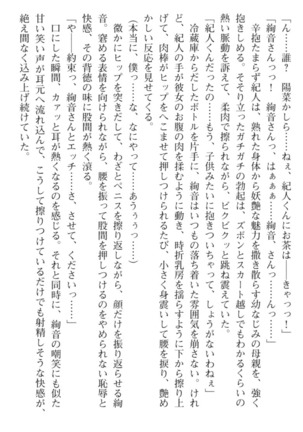 「ん……誰？　陽菜かしら……ねぇ、紀人くんにお茶は――きゃっっ！」
「絢音さんっっ！　絢音さんっ、はぁぁぁ……絢音さんっ……」
辛抱たまらず紀人は、熟れた身体から妖艶な魅力を撒き散らす幼なじみの母親を、強く
抱きしめる。そそり立ったガチガチの勃起は、ズボンとスカート越しでもわかるくらいの
熱い脈動を訴えて、柔肉で擦られながら、ビクビクッと跳ね震えていた。
「紀人くんだったの……もう、子供みたいに抱きついちゃって、しょうがないわねぇ」
冷蔵庫から だしたボトルを片手に、絢音はいつもの落ち着いた雰囲気を崩さない。けれ
ど、紀人の手が彼女のお腹の肉を揉むように動き、時折乳房を揺らすように下から擦り上
げて、肉棒がヒップをへこませて押しつけられるたび、小さく身震いして腰を捩り、艶め
かしい反応を見せてくれる。
（本当に、僕っ……な、なにやって……あうぅぅっ……）
微かにヒップを突きだして、わざとペニスを擦り返しながら、顔だけを振り返らせる絢
音。窘める表情に見上げられながら、腰を振って股間を押しつけるのをやめられない恥辱と
快感、その背徳の味に股間が熱く滾る。
「や――約束っ、絢音さんとエッチ……さ、させて、くださいっ……」
口にした瞬間、カァッと耳が熱くなるのを感じる。それと同時に、絢音の嘲笑にも似た
甘い笑い声が耳元へ流れ込んで、こうして擦りつけているだけでも射精しそうな快感が、
絶え間なく込み上げ続けていた。